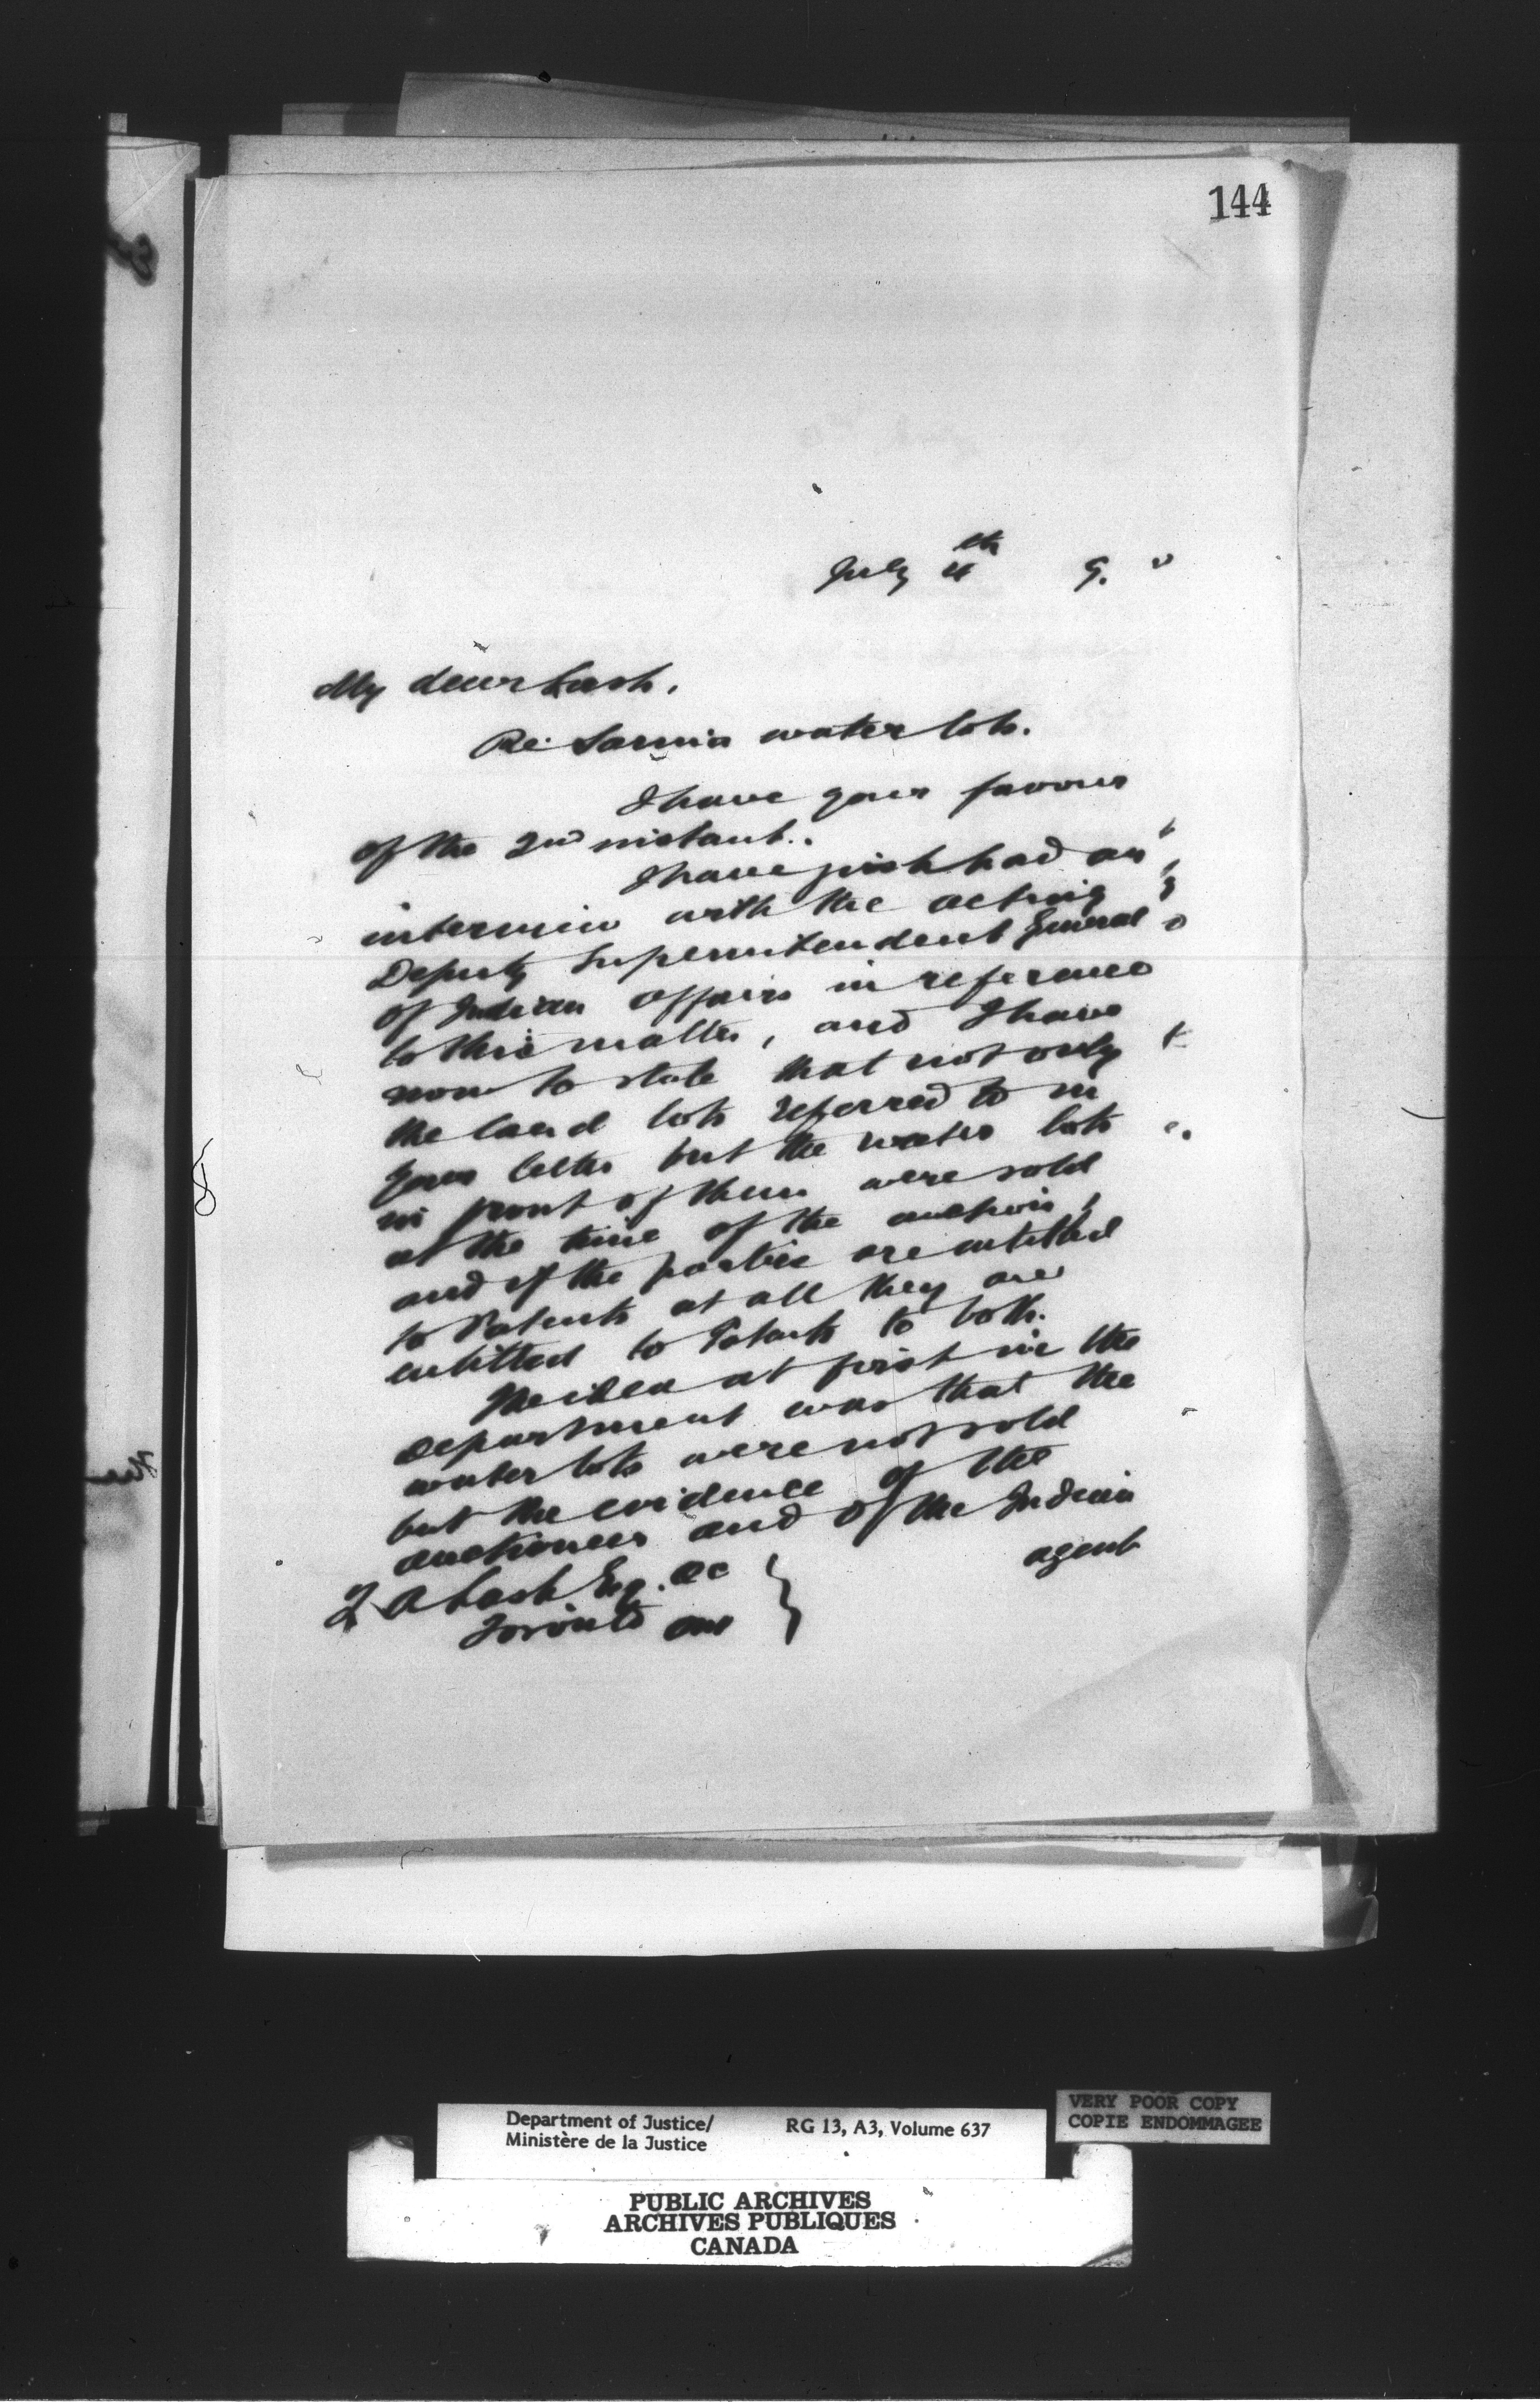 144
July 4th 9.
My dear Lash,
Re: Sarnia water lots.
I have your favour
of the 2nd instant.
I have just had an
interview with the acting
Deputy Superintendent General
of Indian Affairs in reference
to this matter, and I have
now to state that not only
the land lots referred to in
your letter but the water lots
in front of them were sold
at the time of the auction,
and if the parties are entitled
to Patents at all they are
entitled to Patents to both.
The idea at first in the
Department was that the
water lots were not sold
but the evidence of the
auctioneer and of the Indian
agent
Z A Lash Esq. QC
Toronto Ont
Department of Justice/
Ministère de la Justice
RG 13, A3, Volume 637
VERY POOR COPY
COPIE ENDOMMAGEE
PUBLIC ARCHIVES
ARCHIVES PUBLIQUES
CANADA